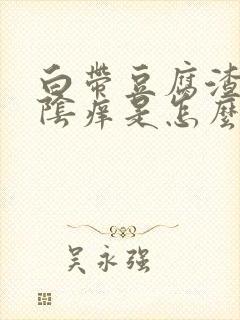 白带豆腐渣
陰痒是怎麼
吴永强